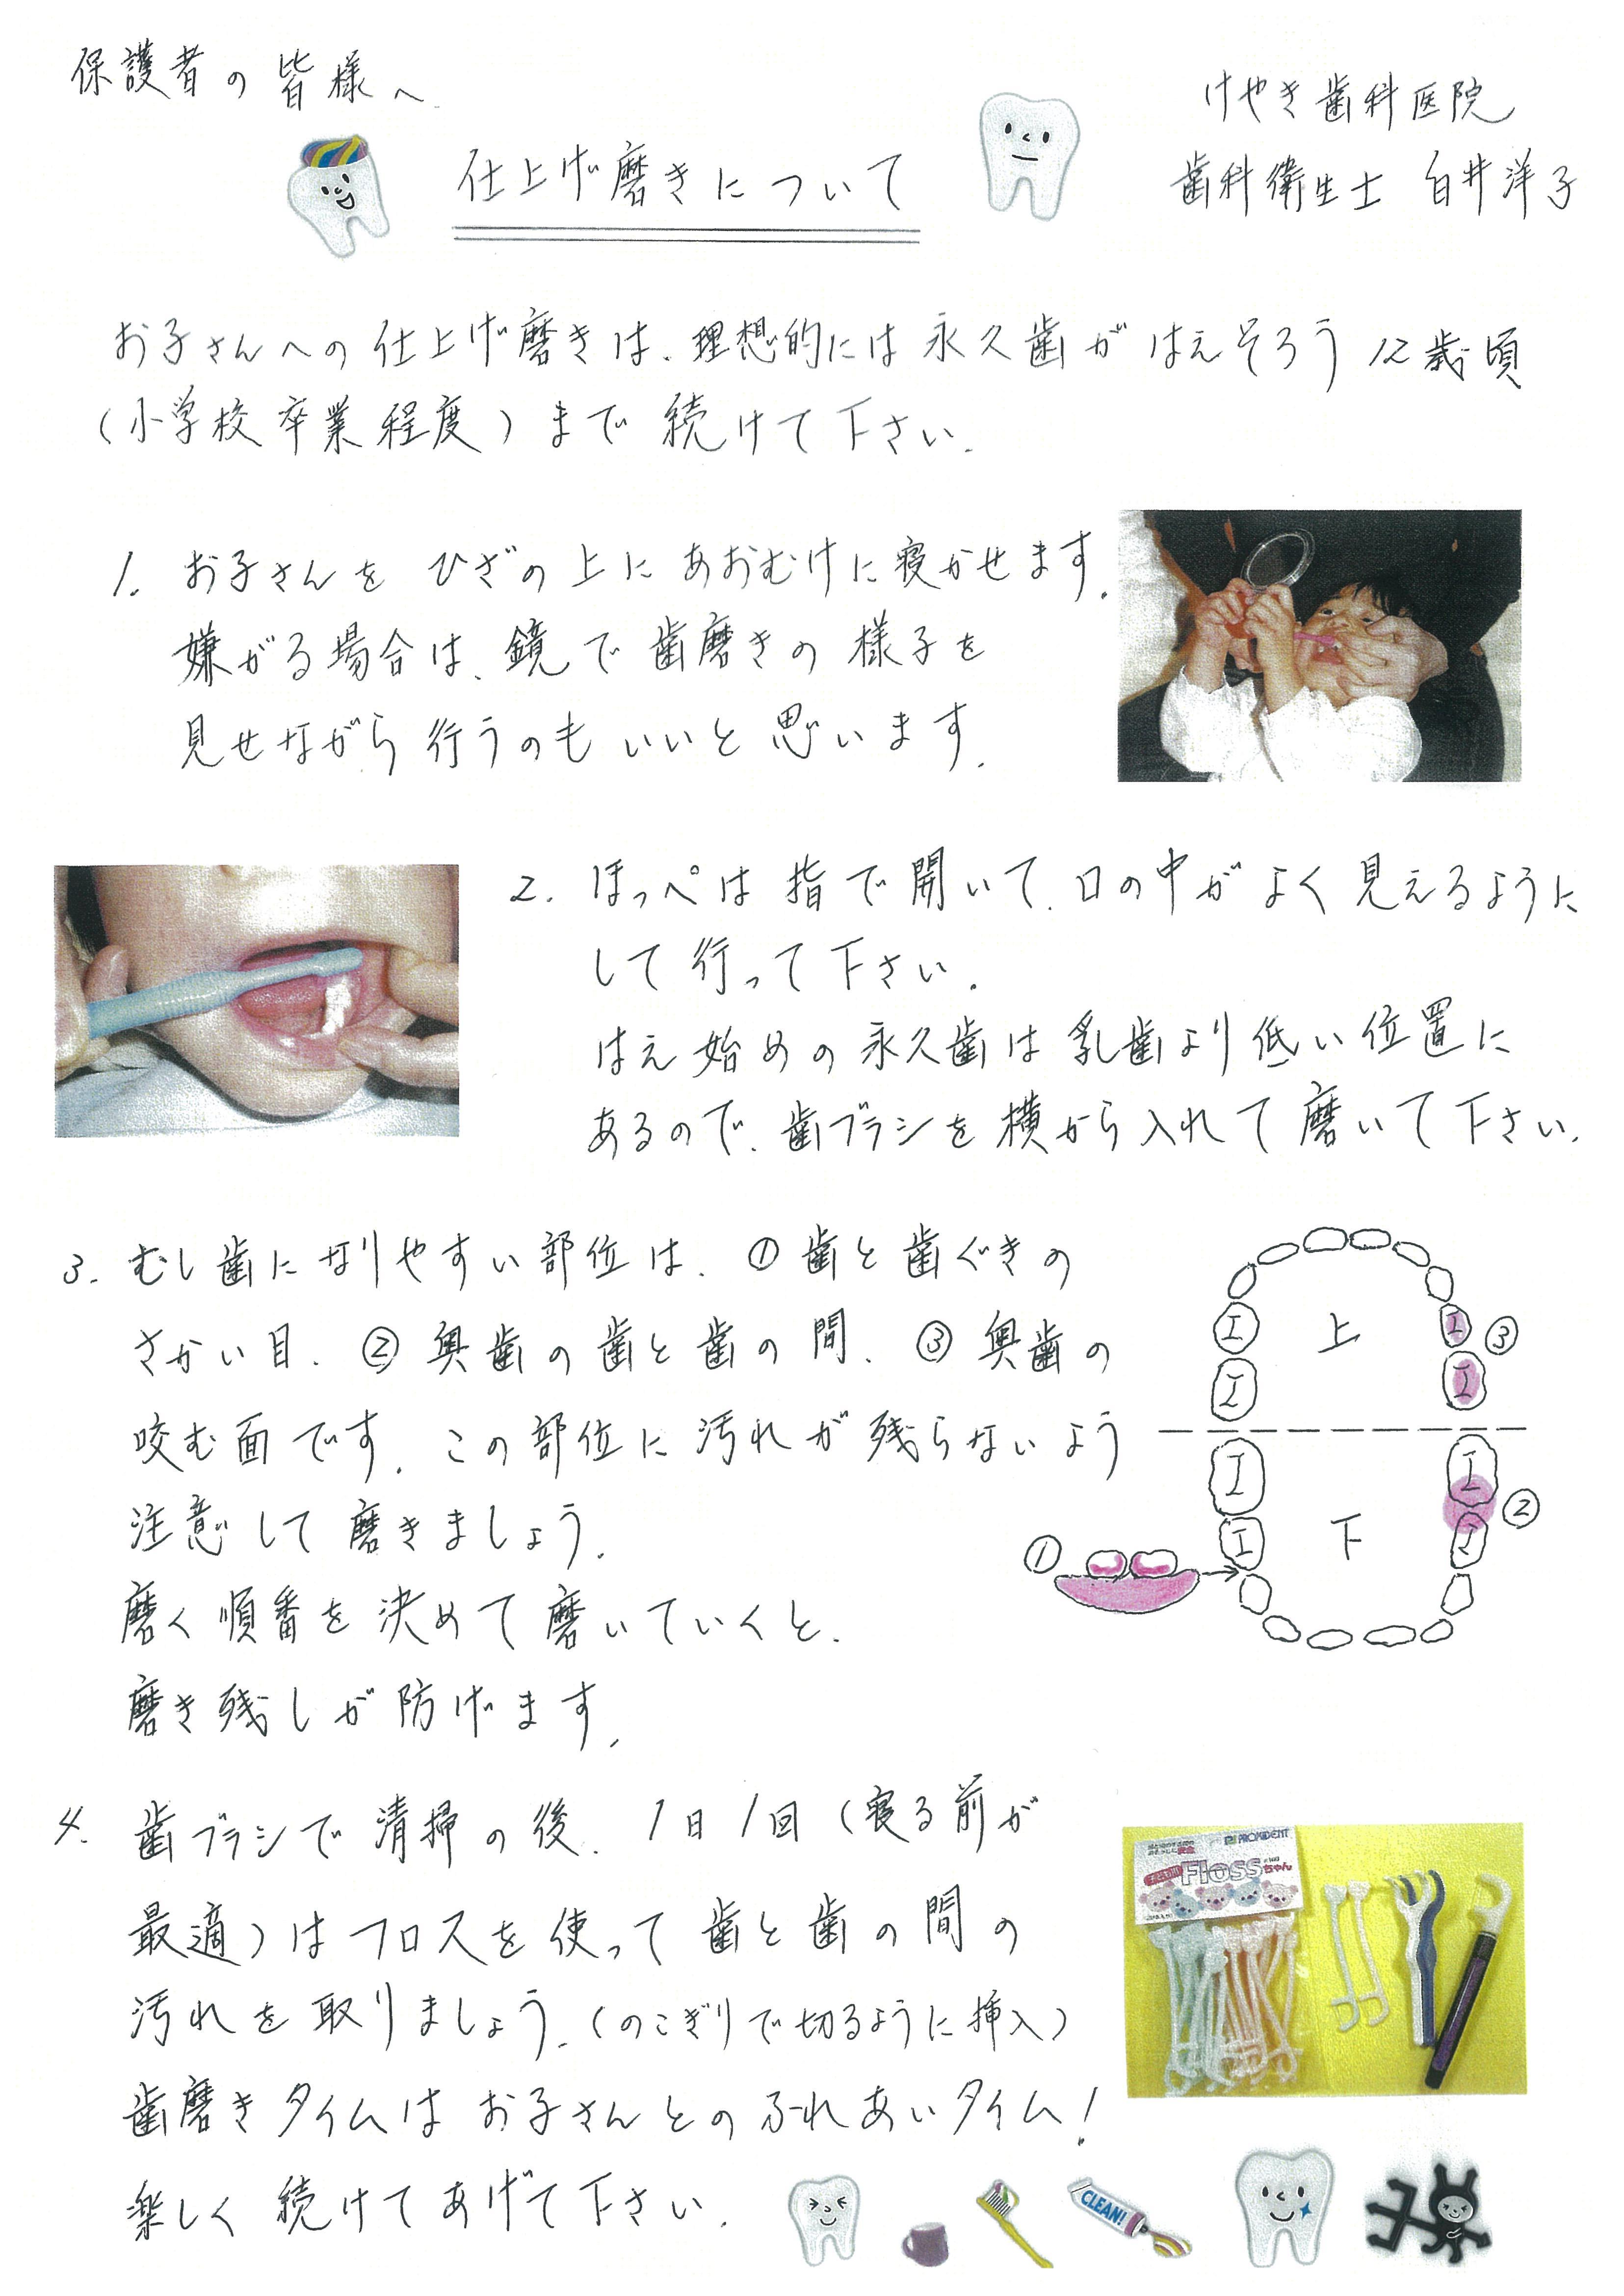 保護者の皆様へ
けやき歯科医院
歯科衛生士 白井洋子
仕上げ磨きについて
お子さんへの仕上げ磨きは、理想的には永久歯がはえそろう12歳頃
(小学校卒業程度)まで続けて下さい。
1. お子さんをひざの上にあおむけに寝かせます。
嫌がる場合は、鏡で歯磨きの様子を
見せながら行うのもいいと思います。
2. ほっぺは指で開いて、口の中がよく見えるように
して行って下さい。
はえ始めの永久歯は乳歯より低い位置に
あるので、歯ブラシを横から入れて磨いて下さい。
3. むし歯になりやすい部位は、①歯と歯ぐきの
さかい目、②奥歯の歯と歯の間、③奥歯の
咬む面です。この部位に汚れが残らないよう
注意して磨きましょう。
磨く順番を決めて磨いていくと、
磨き残しが防げます。
上
③
下
②
①
4. 歯ブラシで清掃の後、1日1回(寝る前が
最適)はフロスを使って歯と歯の間の
汚れを取りましょう。(のこぎりで切るように挿入)
歯磨きタイムはお子さんとのふれあいタイム!
楽しく続けてあげて下さい。
PROXIDENT
Flossちゃん
CLEAN!